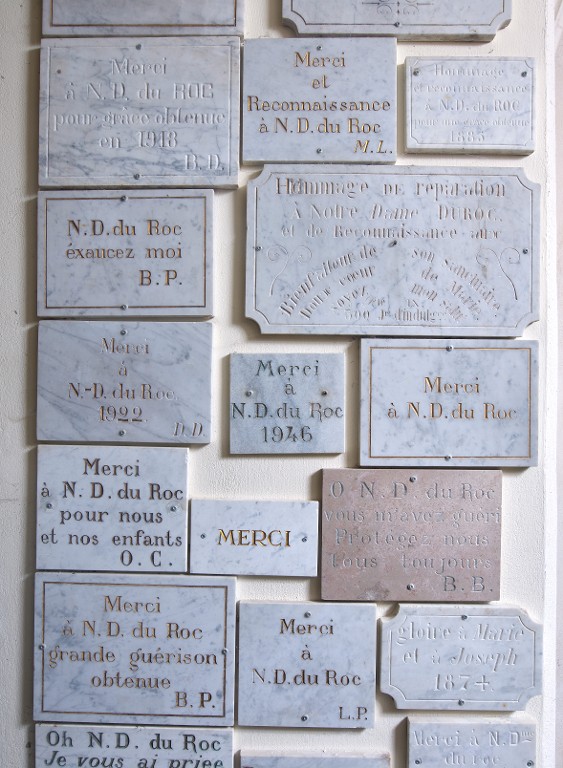 Merci
à N.D. du ROC
pour grâce obtenue
en 1918
B.D.
Merci
et
Reconnaissance
à N.D. du Roc
M.L.
Hommage
et reconnaissance
à N.D. du ROC
pour une grâce obtenue
1885
N.D. du Roc
éxaucez moi
B.P.
Hommage DE réparation
à Notre Dame DU ROC
et de Reconnaissance avec
son sanctuaire
Merci
à
N.-D. du Roc
1922
D.D.
Merci
à
N.D. du Roc
1946
Merci
à N.D. du Roc
Merci
à N.D. du Roc
pour nous
et nos enfants
O.C.
MERCI
O N.D. du Roc
vous m'avez guéri
Protegez nous
tous toujours
B.B.
Merci
à N.D. du Roc
grande guérison
obtenue
B.P.
Merci
à
N.D. du Roc
L.P.
gloire à Marie
et à Joseph
1874
Oh N.D. du Roc
Je vous ai priee
Merci à N.D
du Roc